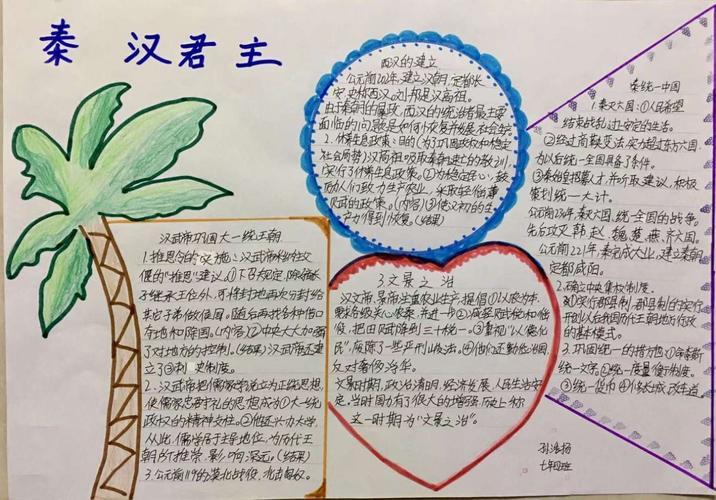 秦 汉君主
西汉的建立
公元前202年,建立汉朝,定都长
安,史称西汉。刘邦是汉高祖。
面临的1问题是如何恢复并发展社会生产
2.休养生息政策:目的(为了巩固政权和稳定
社会局势)汉高祖吸取秦朝速亡的教训
实行了休养生息政策。②为稳定民心,鼓
励人们致力生产农业,采取轻徭薄
赋的政策。(内容)③使汉初的生
产力得到恢复。(结果)
秦统一中国
1.秦灭六国:①人民希望
结束战乱,过安定的生活。
②经过商鞅变法,实力超过东方六国,
为以后统一全国具备了条件。
③秦始皇招募人才,并听取建议,积极
策划统一大计。
公元前230年,秦灭六国,统一全国的战争。
先后攻灭韩赵魏楚燕齐六国。
公元前221年,秦完成大业,建立秦朝
定都咸阳。
2.确立中央集权制度。
3.巩固统一的措施
统一文字②统一度量衡制度。
③统一货币④修长城,改车道
汉武帝巩固大一统王朝
1.推恩令的实施:汉武帝采纳主父
偃的"推恩"建议。①下令规定,除嫡长
子继承王位外,可将封地再次分封给
其它子弟做侯国。
②中央大大加强
了对地方的控制。(结果)汉武帝还建
立了③刺史制度。
2.汉武帝把儒家学说立为正统思想
使儒家忠君守礼的思想成为①大一统
政权的精神支柱。②他还兴办太学
从此,儒学居于主导地位,为历代王
朝所推崇,影响深远。(结果)
3.公元前119的漠北战役,北击匈奴。
3文景之治
汉文帝、景帝注重农业生产,提倡①以农为本。
②减轻赋税和徭
役,把田赋降到三十税一。③重视"以德化
民",废除了一些严刑峻法。④他们还勤俭治国,
反对奢侈浮华。
文景时期,政治清明,经济发展,人民生活安
定,当时国力有了很大的增强,历史上称
这一时期为"文景之治"。
孙浩扬
七年四班